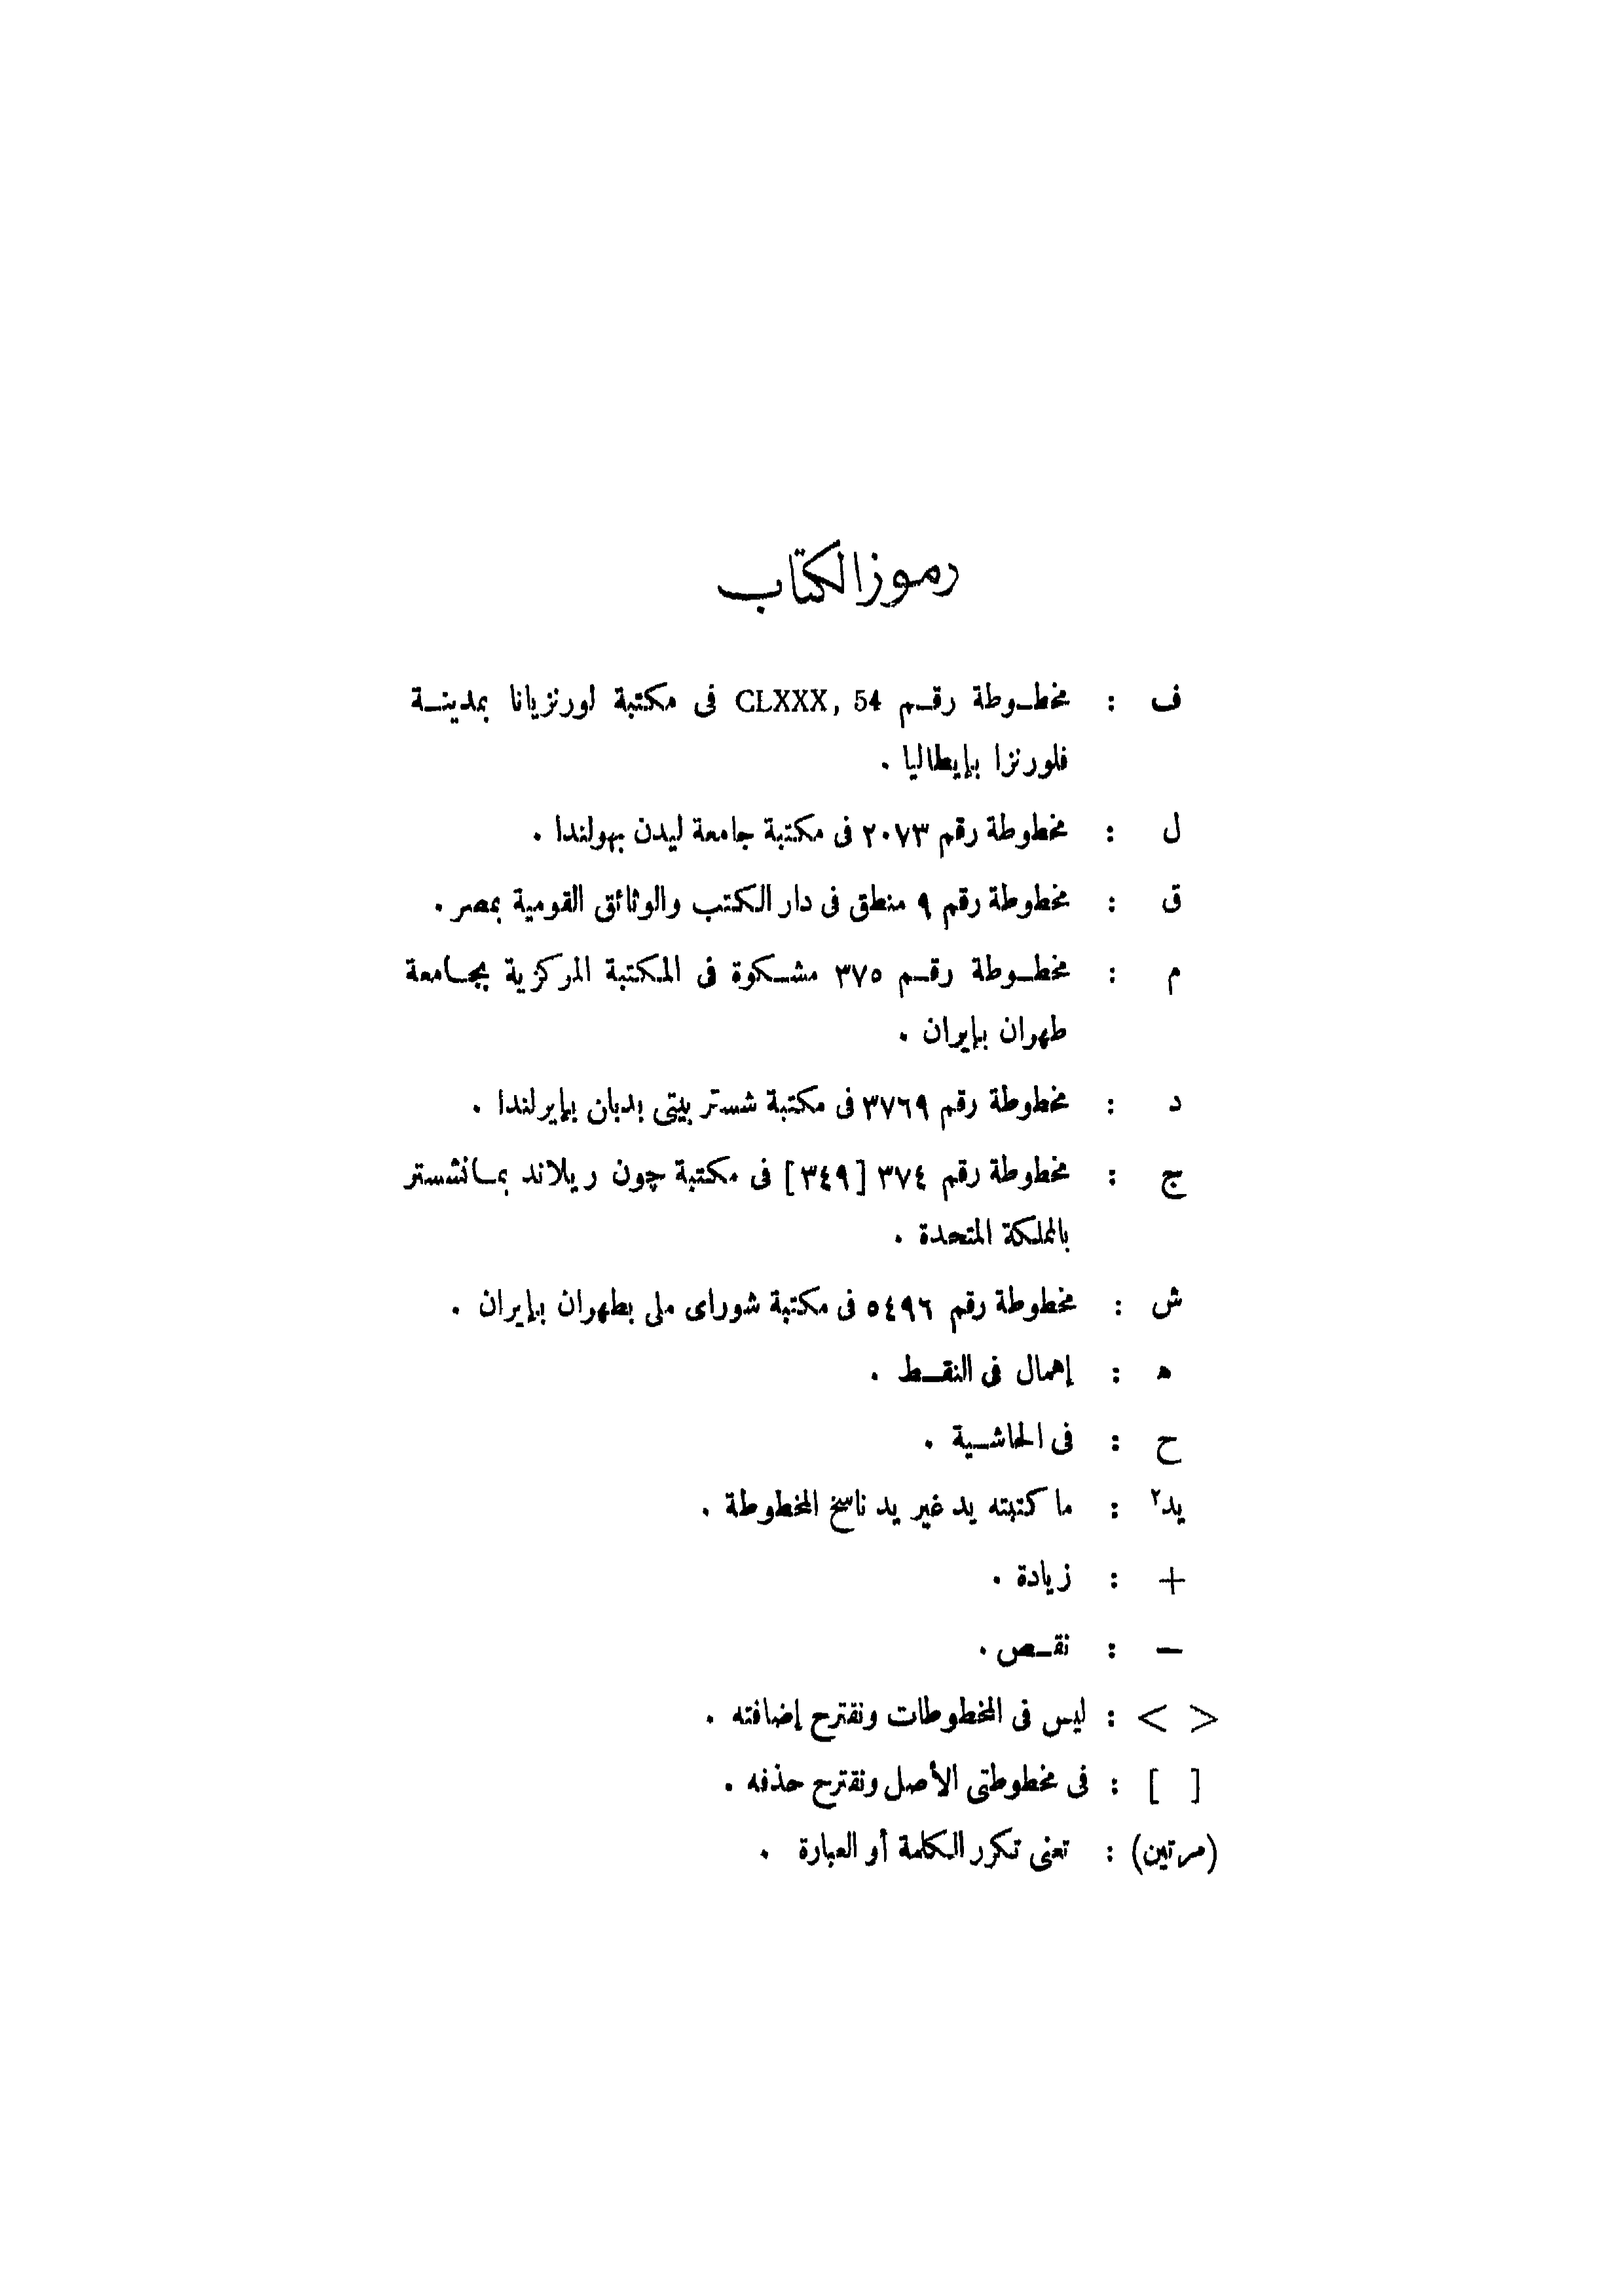 رموز الكتاب
ف : مخطوطة رقم CLXXX, 54 فى مكتبة لورنزيانا بمدينة
فلورنزا بإيطاليا .
ل : مخطوطة رقم ٢٠٧٣ فى مكتبة جامعة ليدن بهولندا .
ق : مخطوطة رقم ٩ منطق فى دار الكتب والوثائق القومية بمصر .
م : مخطوطة رقم ٣٧٥ مشكوة فى المكتبة المركزية بجامعة
طهران بإيران .
د : مخطوطة رقم ٣٧٦٩ فى مكتبة شستر بيتى بدبان بإيرلندا .
ج : مخطوطة رقم ٣٧٤ [٣٤٩] فى مكتبة چون ريلاند بمانشستر
بالمملكة المتحدة .
ش : مخطوطة رقم ٥٤٩٦ فى مكتبة شوراى ملى بطهران بإيران .
ه : إهمال فى النقط .
ح : فى الحاشية .
يد٢ : ما كتبته يد غير يد ناسخ المخطوطة .
+ : زيادة .
— : نقص .
< > : ليس فى المخطوطات ونقترح إضافته .
[ ] : فى مخطوطتى الأصل ونقترح حذفه .
(مرتين) : تعنى تكرر الكلمة أو العبارة .